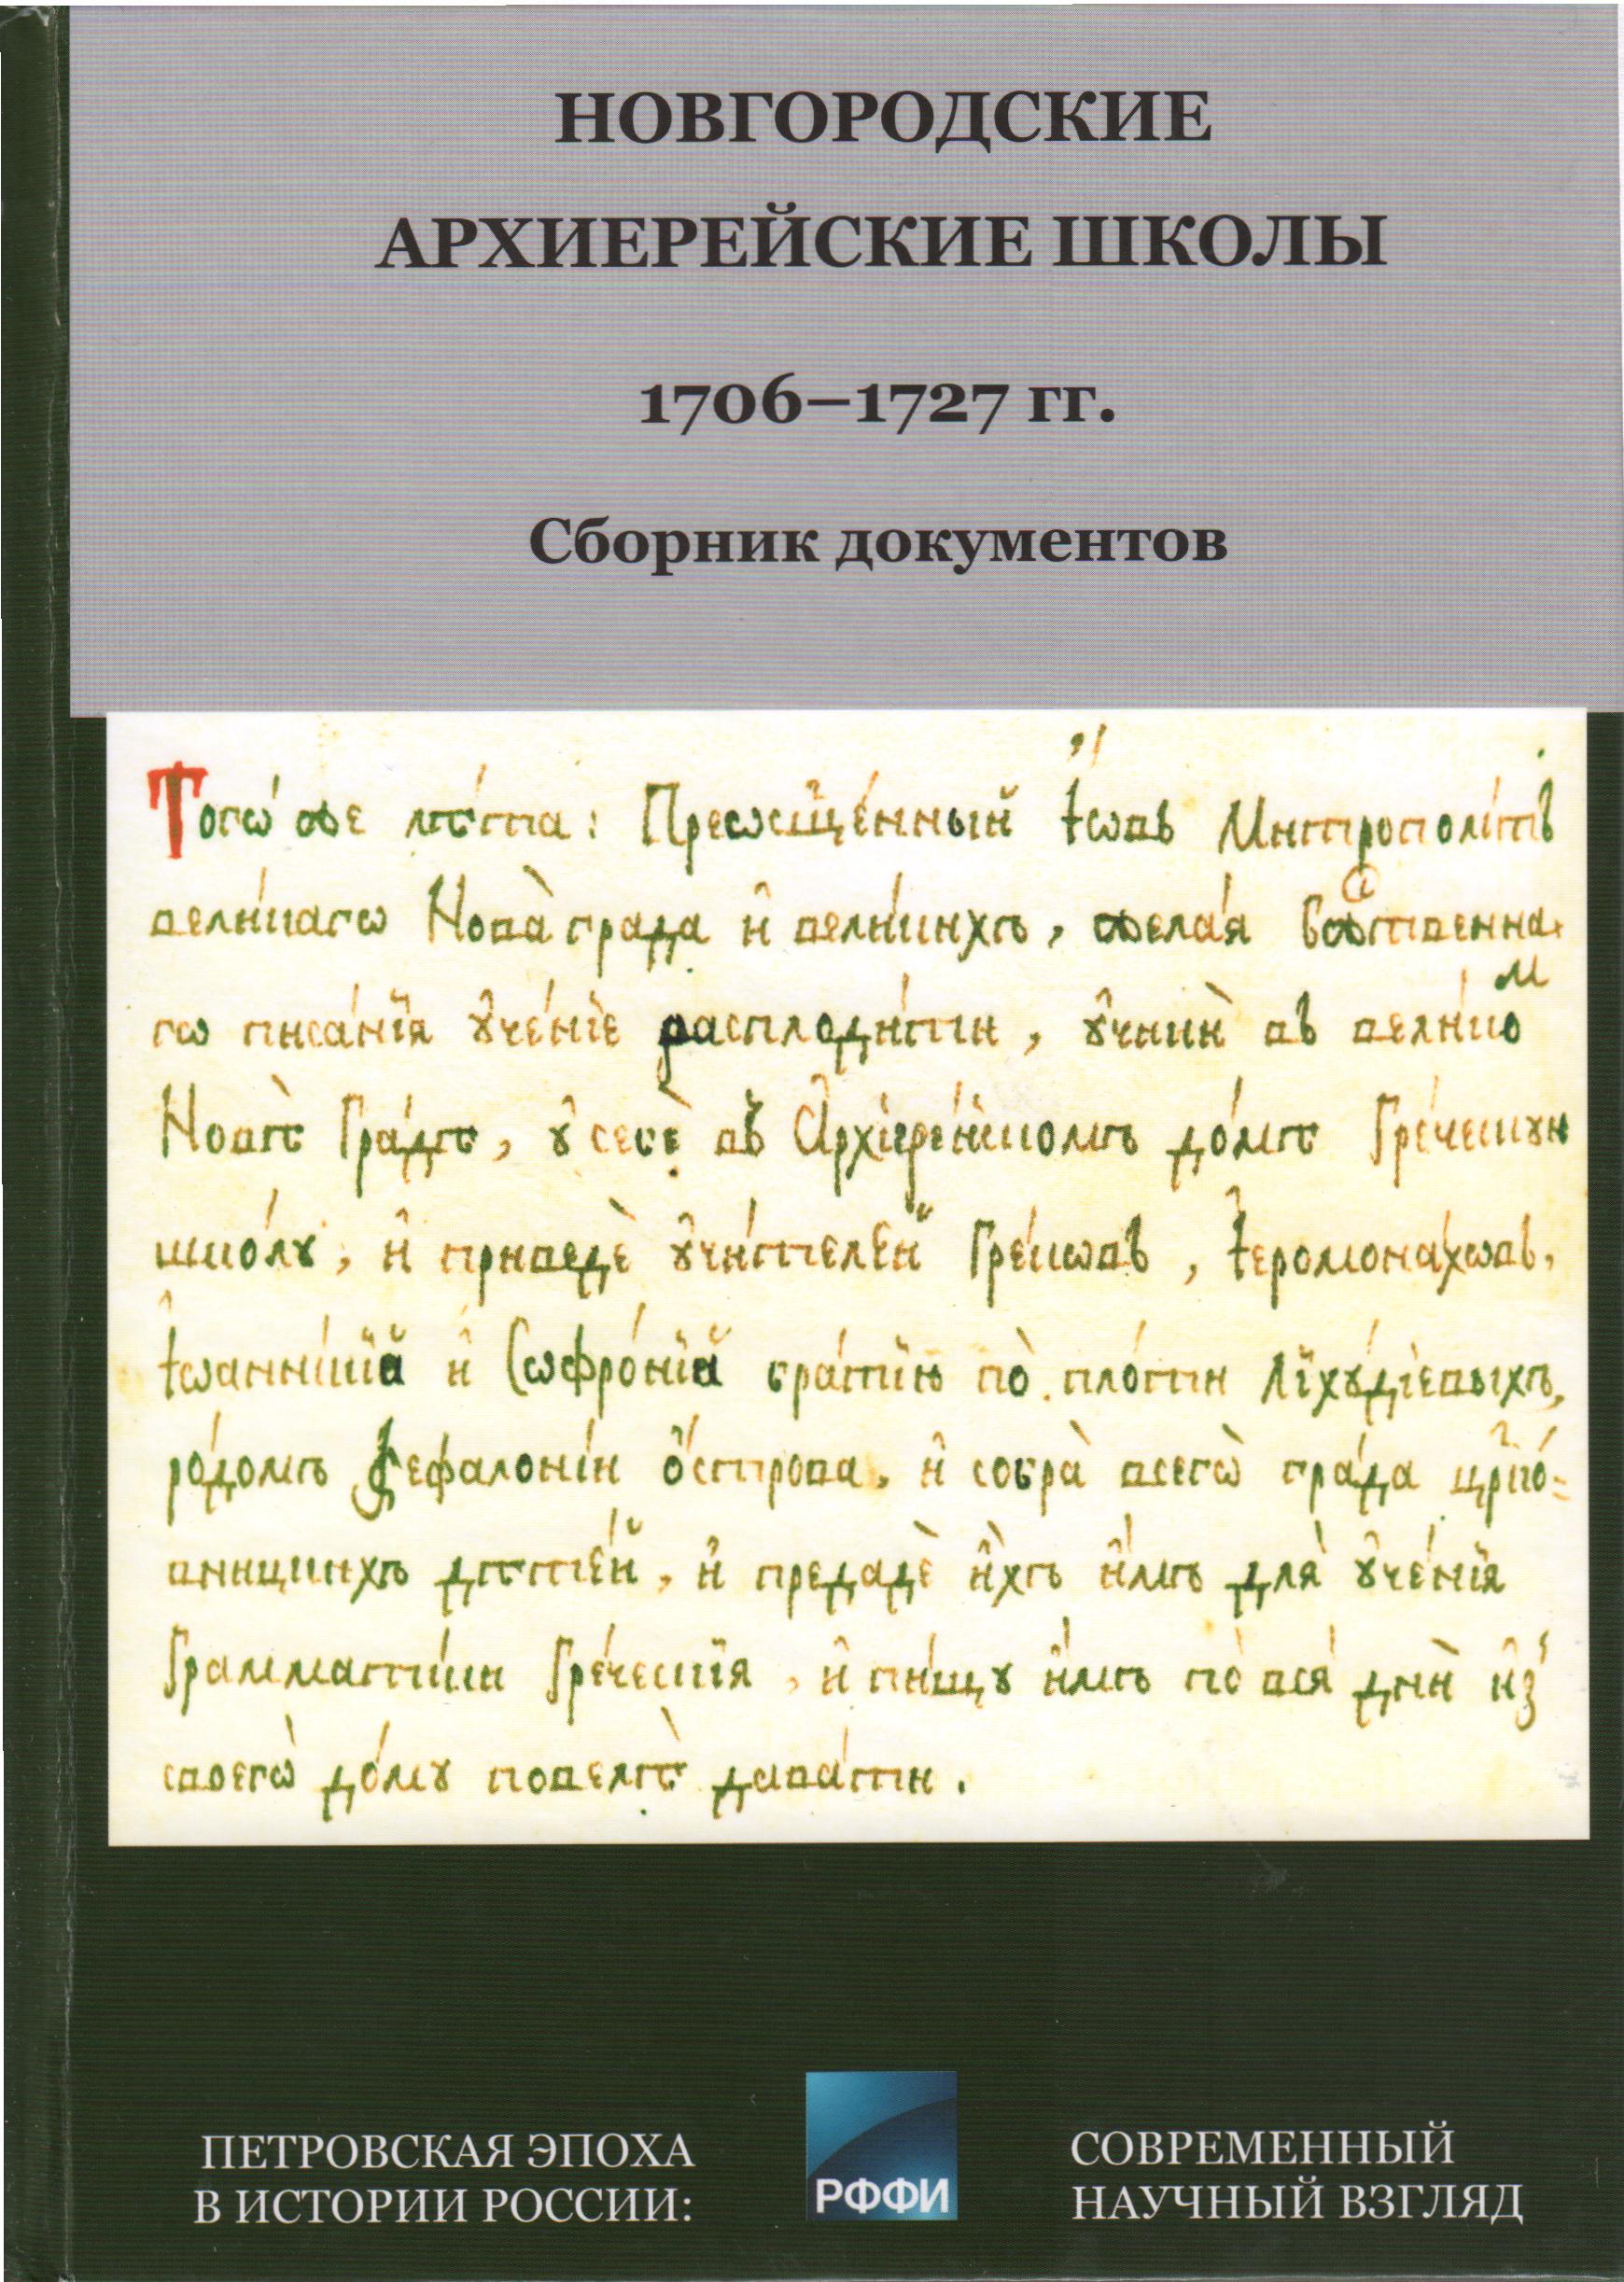 НОВГОРОДСКИЕ
АРХИЕРЕЙСКИЕ ШКОЛЫ
1706–1727 гг.
Сборник документов
Тогѡ́ же лѣ́та: Преѡсщ҃е́нный І҆́ѡвъ Митрополі́тъ
вели́кагѡ Нова̀ града и҆ вели́кихъ, жела́я Бж҃ⷭ҇твенна-
гѡ писа́нїя ᲂу҆че́нїе расплоди́ти, ᲂу҆чинѝ въ вели́коⷨ
Новѣ̀ Гра́дѣ, ᲂу҆ себє̀ въ А҆рхїере́йскомъ до́мѣ Гре́ческую
шко́лу, и҆ приведѐ ᲂу҆чи́телей Гре́кѡвъ, І҆еромона́хѡвъ,
І҆ѡанни́кїа и҆ Сѡфро́нїа бра́тїю по̀ пло́ти Лїху́дїевыхъ,
ро́домъ Кефалоні́и ѻ҆́строва, и҆ собра̀ всегѡ̀ гра́да цр҃ко́-
вницкихъ дѣте́й, и҆ предадѐ и҆̀хъ и҆̀мъ для̀ ᲂу҆че́нїя
Грамма́тики Гре́ческїя, и҆ пи́щу и҆̀мъ по вся̀ днѝ и҆з̾
своегѡ̀ до́му повелѣ̀ дава́ти.
ПЕТРОВСКАЯ ЭПОХА
В ИСТОРИИ РОССИИ:
РФФИ
СОВРЕМЕННЫЙ
НАУЧНЫЙ ВЗГЛЯД